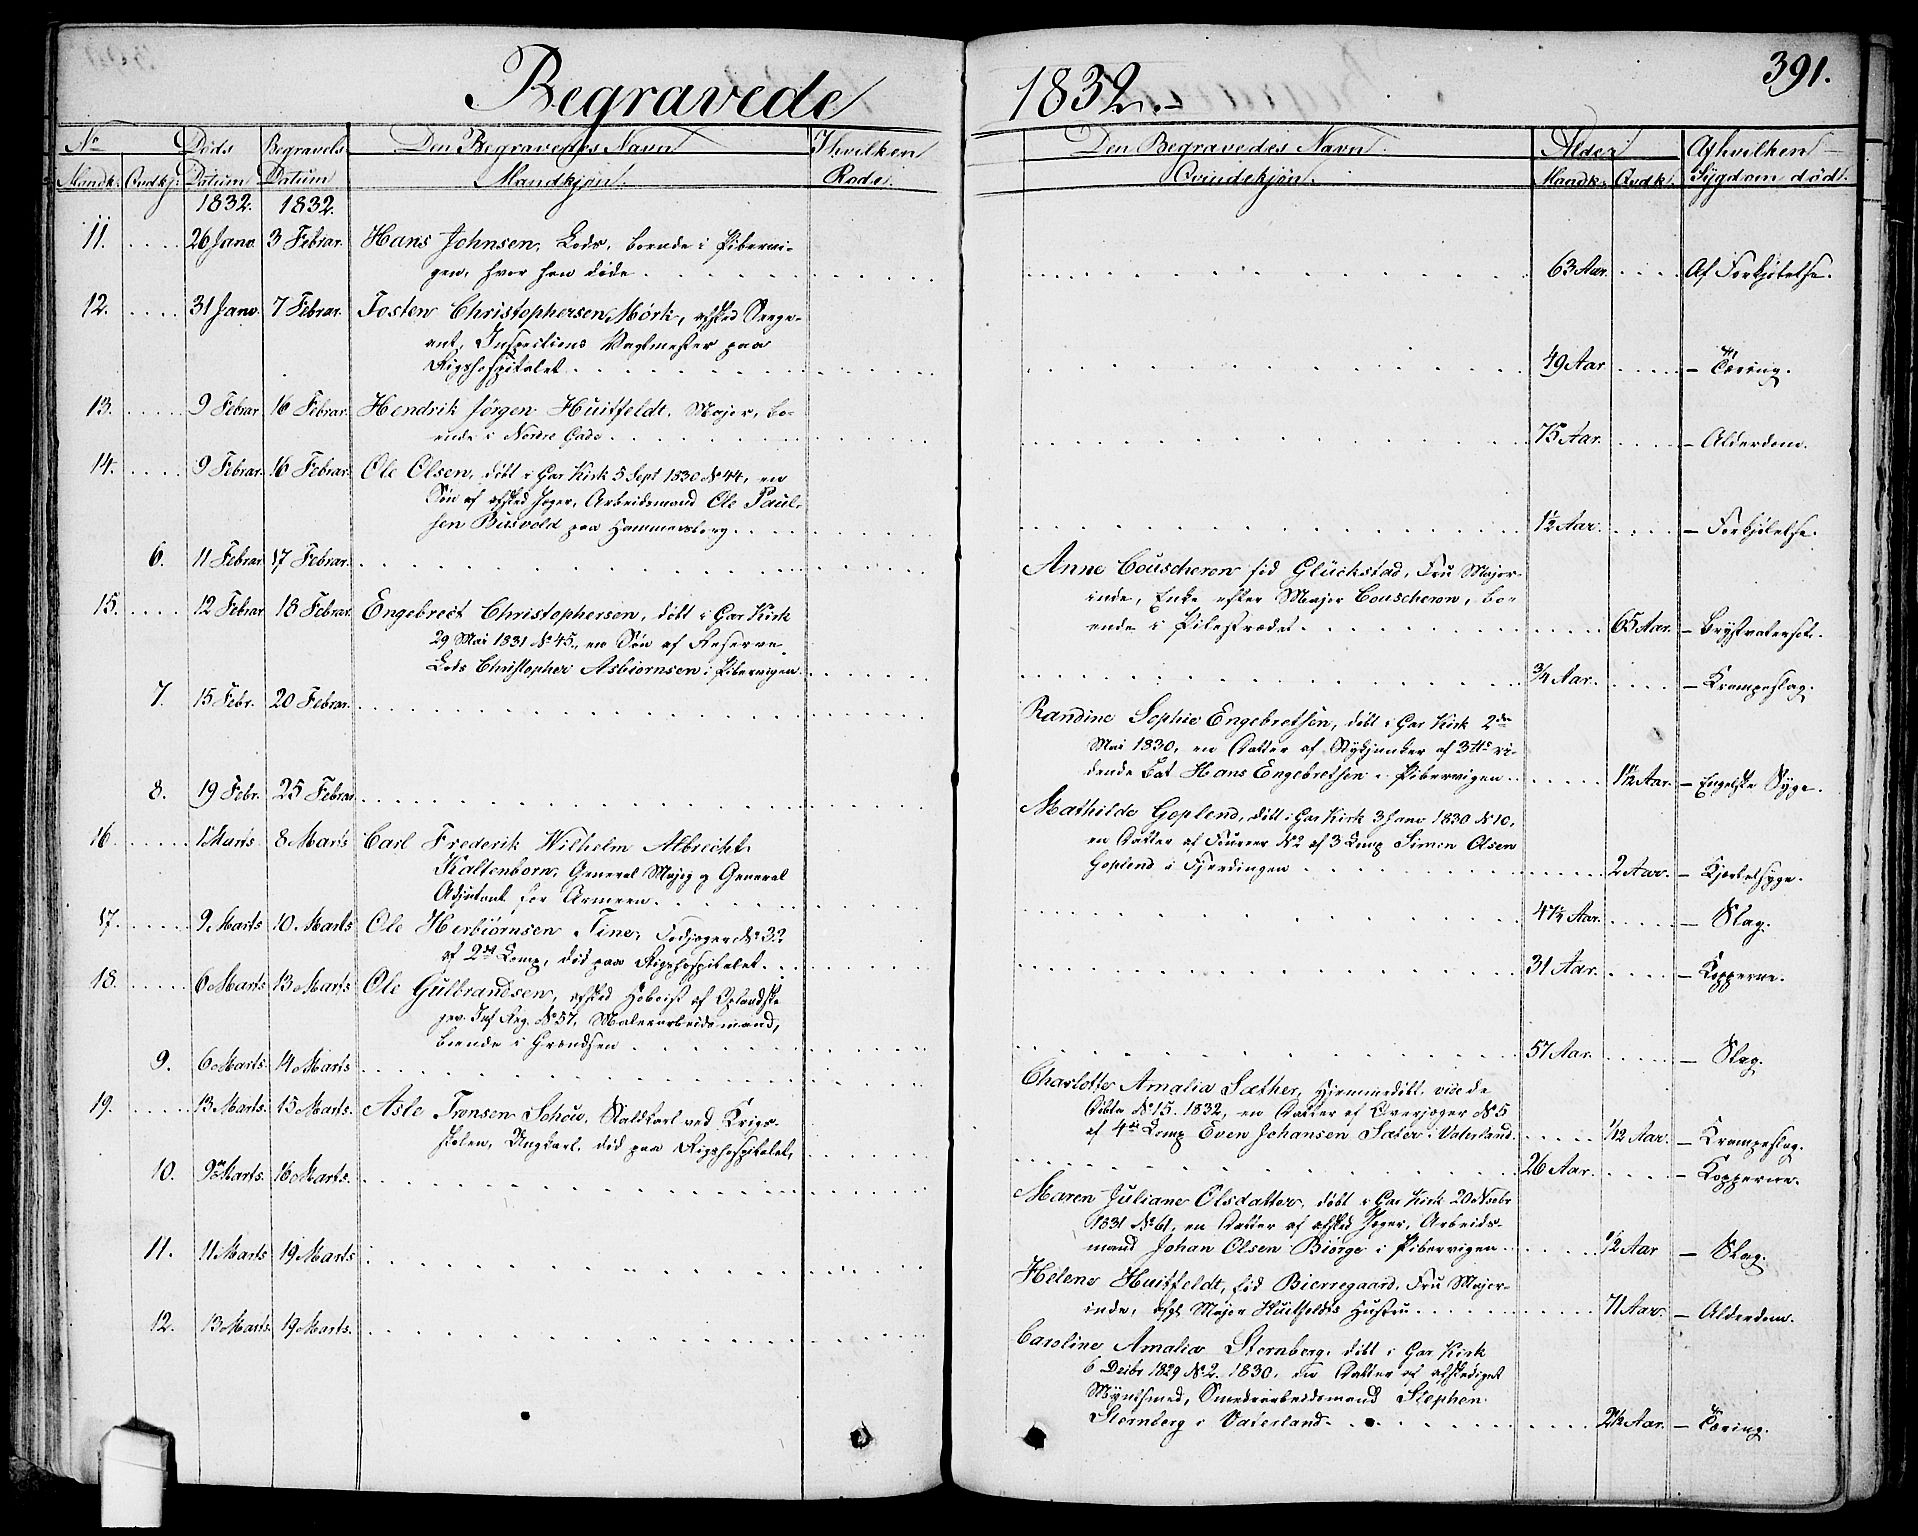 Begravede 1832.
391.
No Døds Begravels Den Begravedes Navn I hvilken Den Begravedes Navn Alder Af hvilken
Mandk: Qvdkj: Datum Datum Mandkjøn. Rode. Qvindekjøn. Mandk: Qvdk: Sygdom død
1832. 1832.
11. 26 Janv. 3 Febrar. Hans Johnsen, Lods, boende i Pibervi-
gen, hvor han døde 63 Aar. Af Forkjølelse.
12. 31 Janv. 7 Febrar. Tosten Christophersen Mørk, afsked Serge-
ant, Inspections Vagtmester paa
Rigshospitalet 49 Aar - Tæring.
13. 9 Febrar 16 Febrar. Hendrik Jørgen Huitfeldt, Major, bo-
ende i Nordre Gade 75 Aar. - Alderdom.
14. 9 Febrar. 16 Febrar. Ole Olsen, døbt i Gar Kirk 5 Sept 1830 No 44, en
Søn af afsked Jæger, Arbeidsmand Ole Paul-
sen Busvold paa Hammersborg 1½ Aar. - Forkjølelse.
6. 11 Febrar 17 Febrar. Anne Couscheron fød Glückstad, Fru Major-
inde, Enke efter Major Couscheron, bo-
ende i Pilestrædet 65 Aar. - Brystvatersot.
15. 12 Febrar 18 Febrar. Engebrect Christophersen, døbt i Gar Kirk
29 Mai 1831 No 45, en Søn af Reserve
Lods Christopher Asbiørnsen i Pibervigen ¾ Aar. - Krampeslag.
7. 15 Febr. 20 Febrar. Randine Sophie Engebretsen, døbt i Gar Kirk 2den
Mai 1830, en Datter af Stykjunker af 3die ri-
dende Bat Hans Engebretsen i Pibervigen 1½ Aar. - Engelske Syge.
8. 19 Febr. 25 Febrar Mathilde Goplend, døbt i Gar Kirk 3 Janv 1830 No 10,
en Datter af Fourer No 2 af 3 Komp Simen Olsen
Goplend i Fjerdingen 2 Aar. - Kjertelsyge.
16. 1 Marts 8 Marts Carl Frederik Wilhelm Albrecht
Kaltenborn, General Majog og General
Adjutant for Armeen 47½ Aar. - Slag.
17. 9 Marts 10 Marts Ole Herbiørnsen Tine, Fodjæger No 32
af 2det Komp, død paa Rigshospitalet 31 Aar. - Kopperne.
18. 6 Marts 13 Marts Ole Gulbrandsen, afsked Hoboist af Oplandske
Inf Reg. No 57, Malerarbeidsmand,
boende i Grændsen 57 Aar. - Slag.
9. 6 Marts. 14 Marts Charlotte Amalia Sæther, hjemmedøbt, vide de
Døbte No 15. 1832, en Datter af Overjæger No 5
af 4de Komp Even Johansen Sæter i Vaterland. 1/12 Aar. - Krampeslag.
19. 13 Marts. 15 Marts. Asle Tronsen Schou, Staldkarl ved Krigs-
skolen, Ungkarl, død paa Rigshospitalet, 26 Aar. - Kopperne.
10. 9 Marts. 16 Marts. Maren Juliane Olsdatter, døbt i Gar Kirk
1831 No 61, en Datter af afsked Jæger, Arbeids-
mand Johan Olsen Biørge i Pibervigen ½ Aar - Slag.
11. 11 Marts 19 Marts Helene Huitfeldt, fød Bierregaard, Fru Major-
inde, afgt Major Huitfeldts Hustru 71 Aar. - Alderdom.
12. 13 Marts. 19 Marts. Caroline Amalia Sternberg, døbt i Gar Kirk
6 Decbr 1829 No 2. 1830, en Datter af afskediget
Myntsmed, Smedearbeidsmand Stephen
Sternberg i Vaterland 2½ Aar. - Tæring.